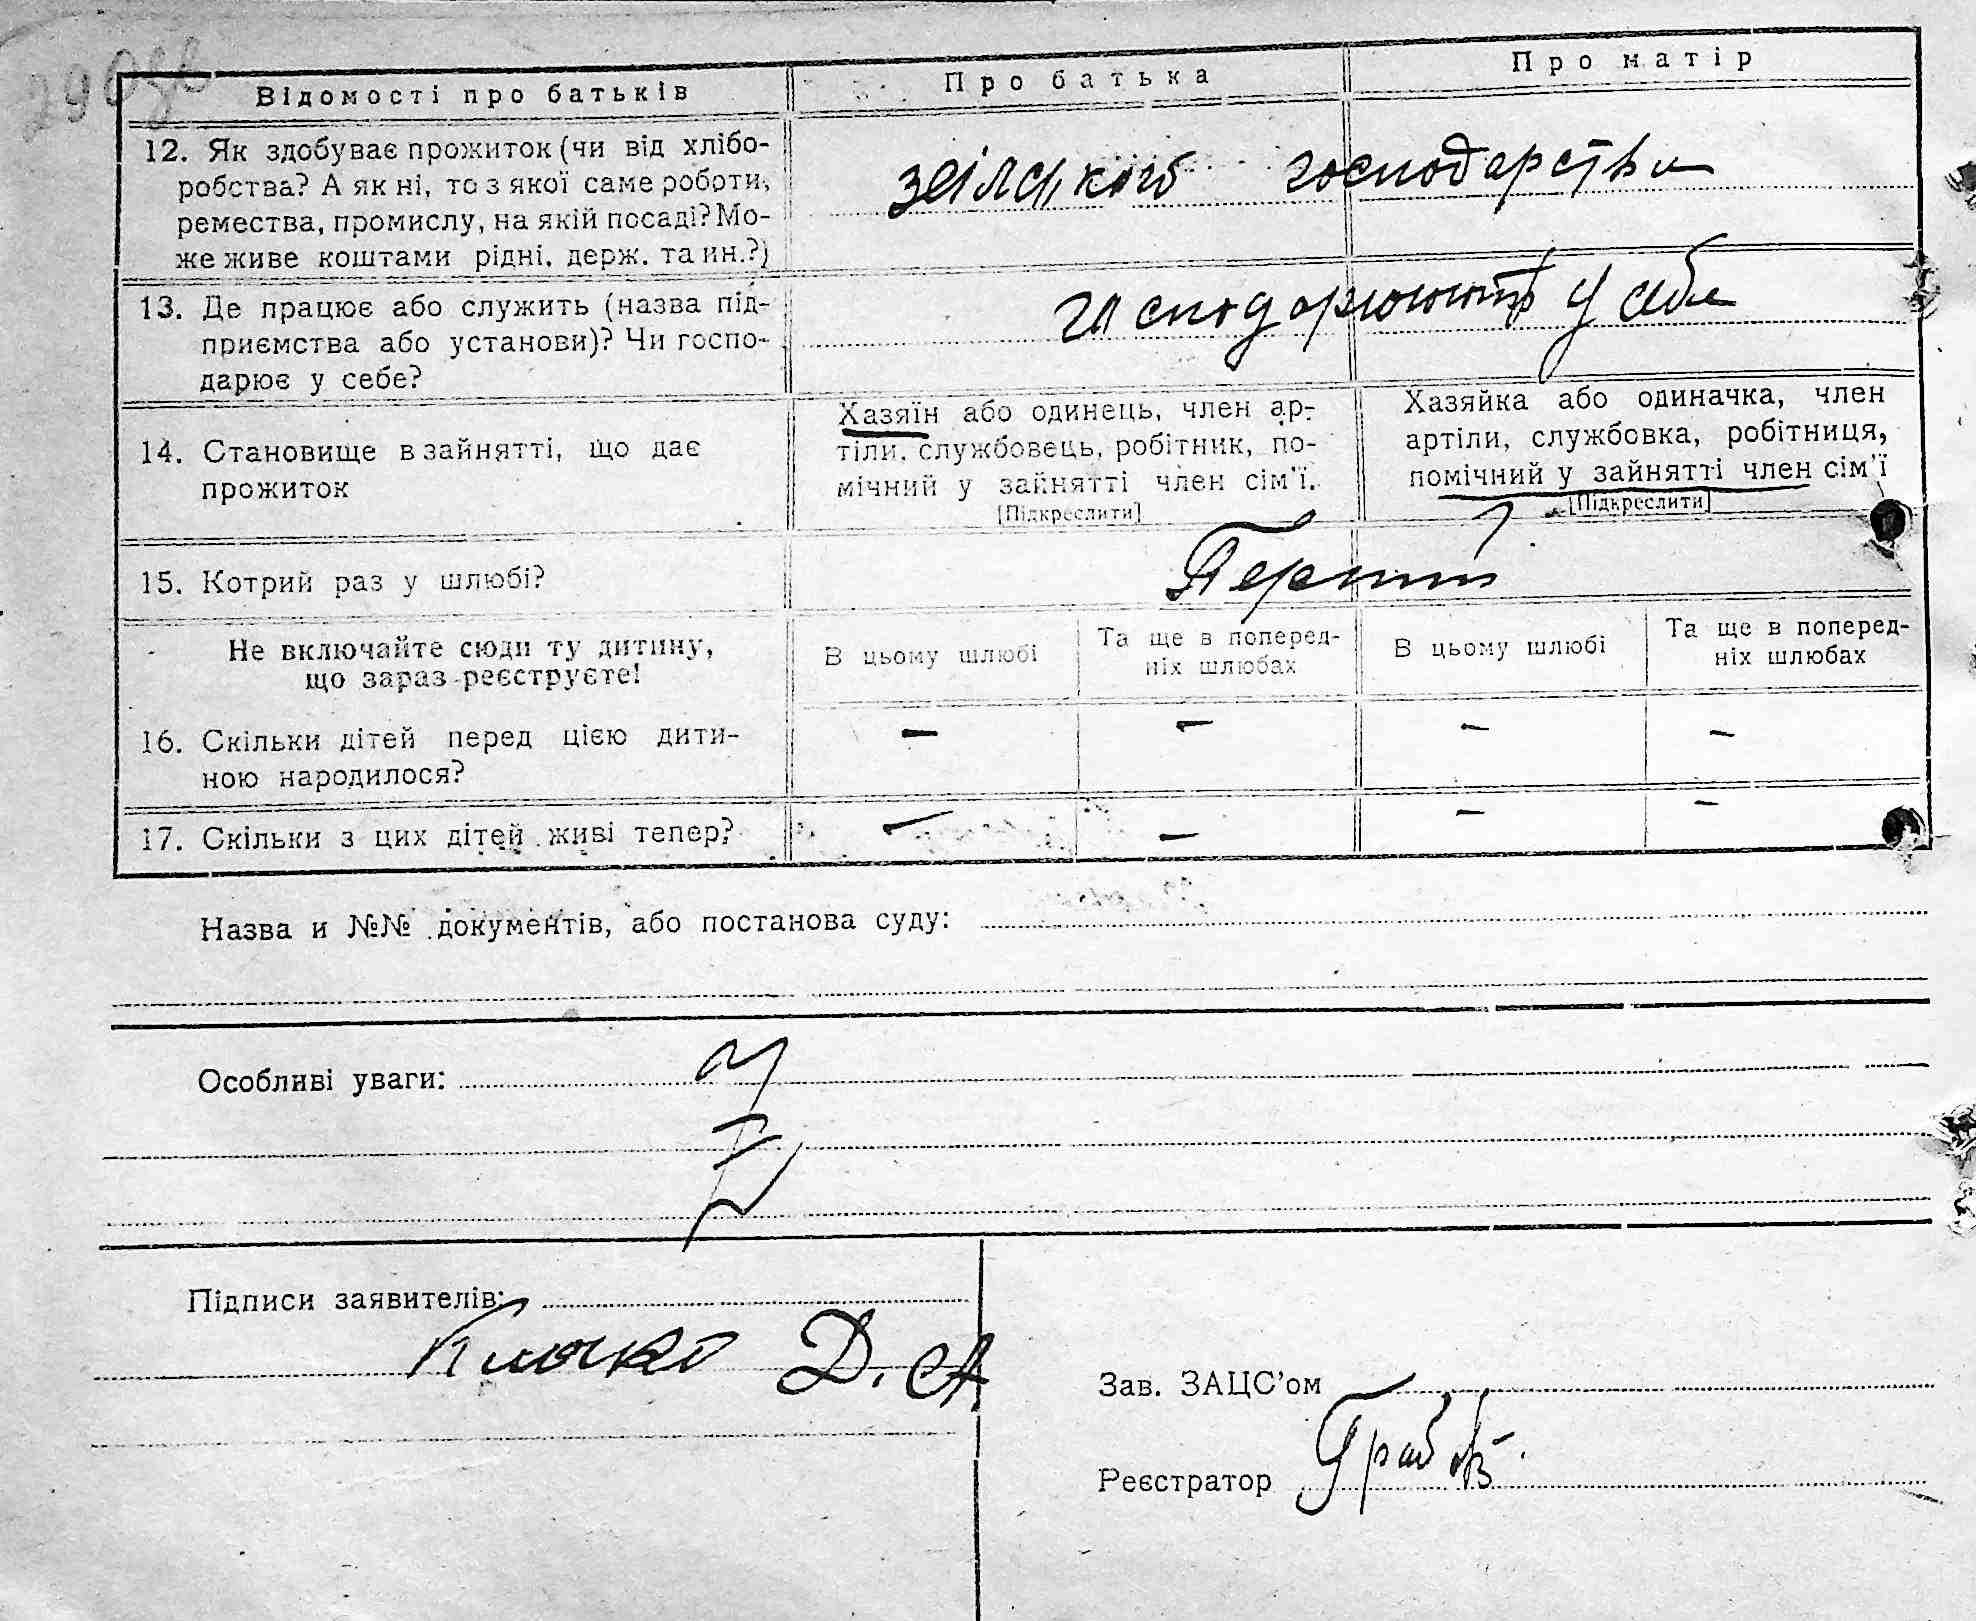 29 об
Відомості про батьків
Про батька
Про матір
12. Як здобуває прожиток (чи від хлібо-
робства? А як ні, то з якої саме роботи,
ремества, промислу, на якій посаді? Мо-
же живе коштами рідні. держ. та ин.?)
господарства
13. Де працює або служить (назва під-
приємства або установи)? Чи госпо-
дарює у себе?
господарюють у себе
14. Становище в зайнятті, що дає
прожиток
Хазяїн або одинець, член ар-
тіли, службовець, робітник, по-
мічний у зайнятті член сім'ї.
[Підкреслити]
Хазяйка або одиначка, член
артіли, службовка, робітниця,
помічний у зайнятті член сім'ї
[Підкреслити]
15. Котрий раз у шлюбі?
Перший
Не включайте сюди ту дитину,
що зараз реєструєте!
В цьому шлюбі
Та ще в поперед-
ніх шлюбах
В цьому шлюбі
Та ще в поперед-
ніх шлюбах
16. Скільки дітей перед цією дити-
ною народилося?
– – – –
17. Скільки з цих дітей живі тепер?
– – – –
Назва и №№ документів, або постанова суду:
Особливі уваги:
Підписи заявителів:
Клочко Д. А
Зав. ЗАЦС'ом
Реєстратор